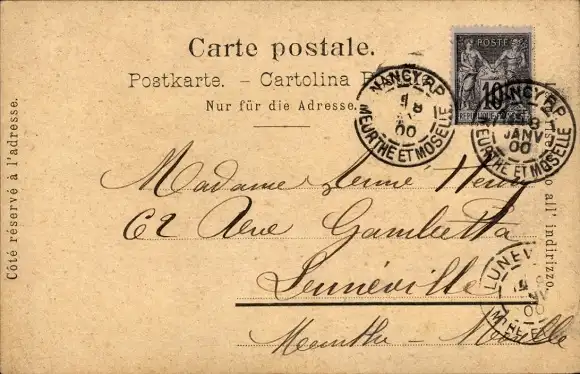 Carte postale.
Postkarte. – Cartolina P
Nur für die Adresse.
Côté réservé à l'adresse.
riservato all' indirizzo.
POSTE
10
NANCY R.P.
8
00
MEURTHE ET MOSELLE
NANCY R.P.
8
JANV
00
MEURTHE ET MOSELLE
Madame Henry
62 Rue Gambetta
Lunéville
Meurthe - Moselle
LUNEV
00